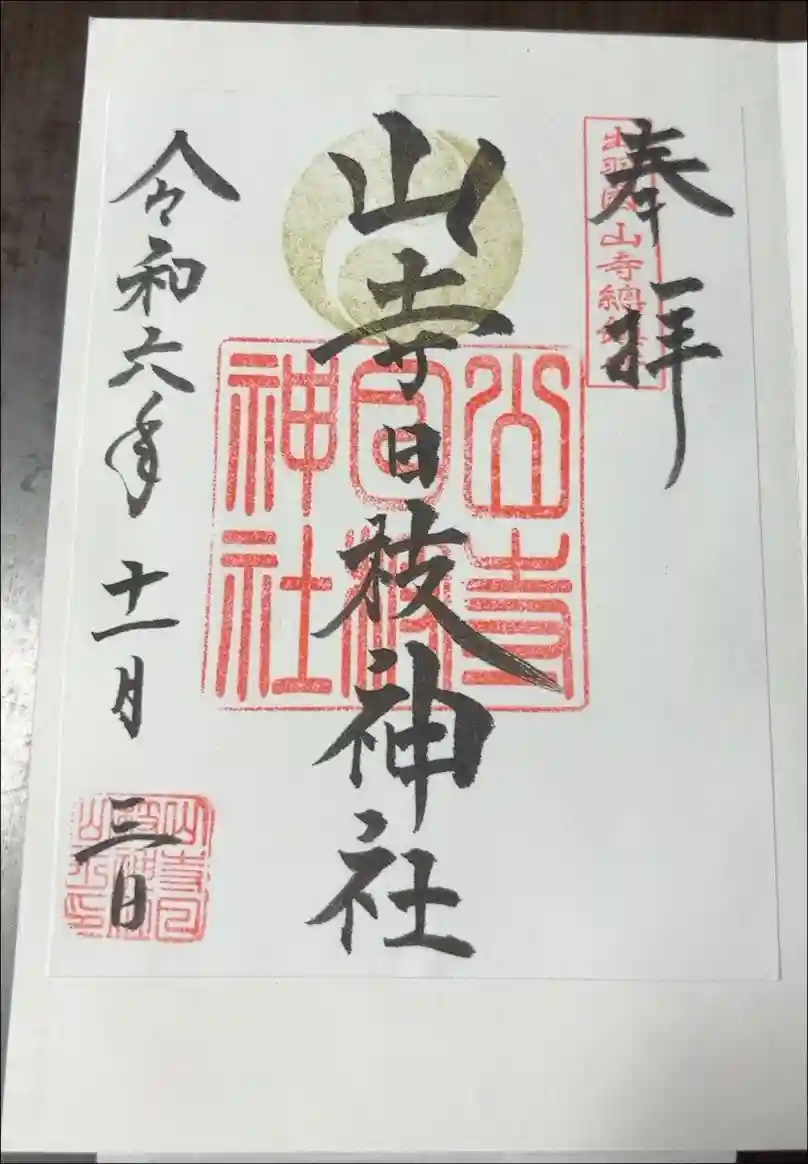 奉拝
出羽國山寺總鎮
山寺日枝神社
山寺
日枝
神社
令和六年十一月三日